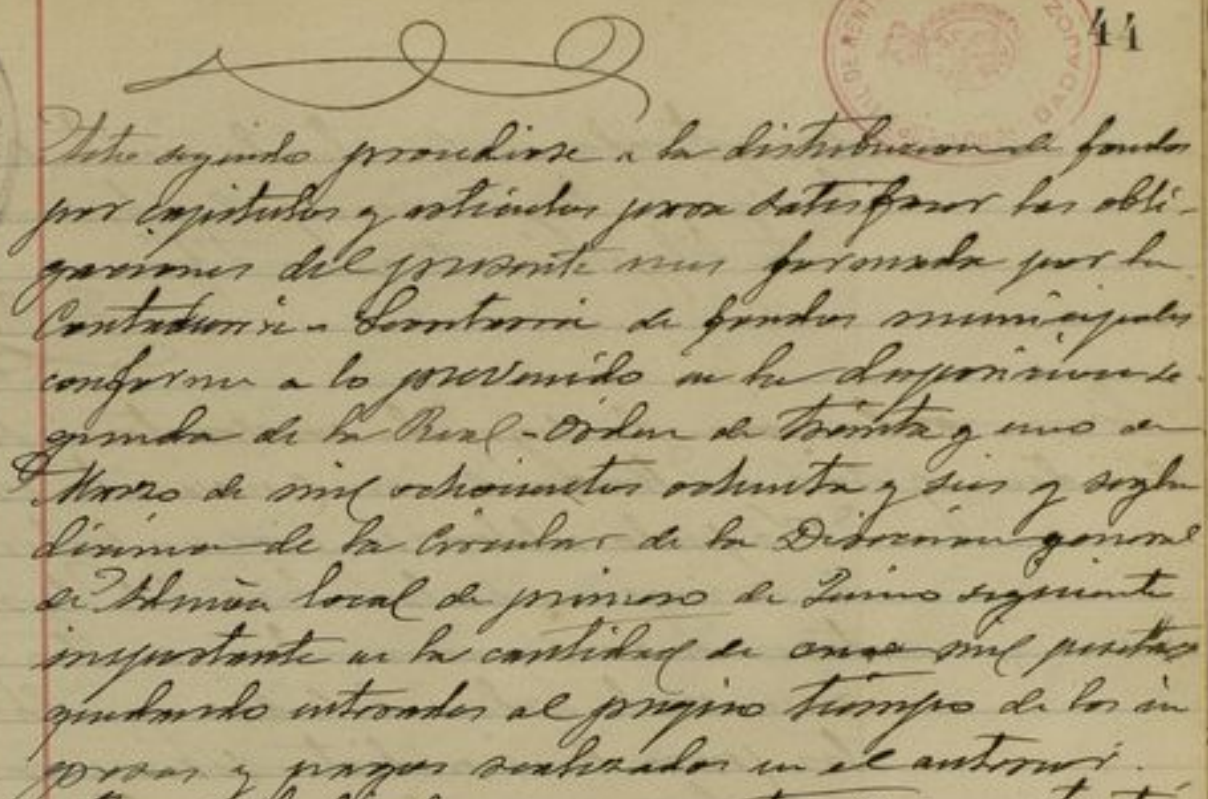 44
Acto seguido procediose a la distribucion de fondos
por capitulos y articulos para satisfacer las obli-
gaciones del presente mes formada por la
Contaduria - Secretaria de fondos municipales
conforme a lo prevenido en la disposicion se-
gunda de la Real-Orden de treinta y uno de
Marzo de mil ochocientos ochenta y seis y regla
decima de la Circular de la Direccion general
de Admón local de primero de Junio siguiente
importante en la cantidad de once mil pesetas
quedando enterados al propio tiempo de los in
gresos y pagos realizados en el anterior.